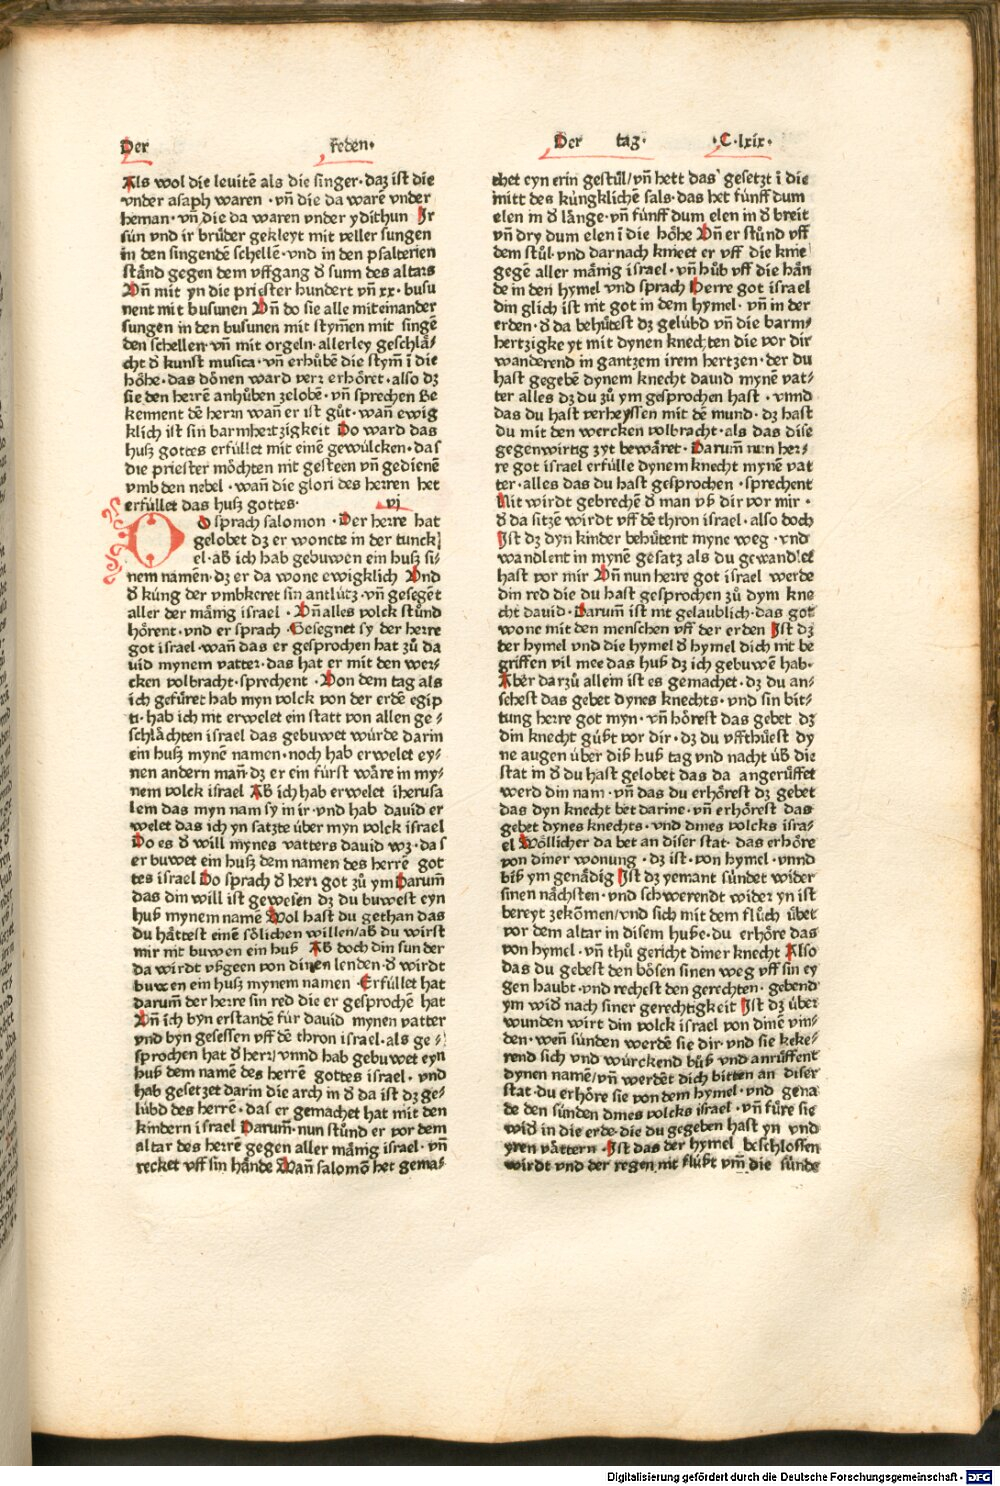 Der reden·
Als wol die leuitē als die singer·daz ist die
vnder asaph waren ·vñ die da warē vnder
heman·vñ die da waren vnder ydithun Ir
sün vnd ir brüder gekleyt mit veller sungen
in den singendē schellē·vnd in den psalterien
ständ gegen dem vffgang d sunn des altars
Vñ mit yn die priester hundert vñ xx·busu
nent mit busunen Vñ do sie alle miteinander
sungen in den busunen mit stym̄en mit singē
den schellen·vñ mit orgeln·allerley geschlä⸗
cht d kunst musica·vñ erhübē die stym̄ ī die
höhe·das dönen ward verr erhöret·also dz
sie den herrē anhüben zelobē·vñ sprechen Be
kennent dē herrn wañ er ist güt·wañ ewig
klich ist sin barmhertzigkeit Do ward das
husz gottes erfüllet mit einē gewülcken·das
die priester möchten nit gesteen vñ gedienē
vmb den nebel·wañ die glori des herren het
erfüllet das husz gottes· vi
DO sprach salomon·Der herre hat
gelobet dz er wonete in der tunck⸗
el·ab ich hab gebuwen ein husz si⸗
nem namen·dz er da wone ewigklich Und
d küng der vmbkeret sin antlütz·vñ gesegēt
aller der mänig israel·Vñ alles volck stünd
hörent·vnd er sprach·Gesegnet sy der herre
got israel·wañ das er gesprochen hat zü da
uid mynem vatter·das hat er mit den wer⸗
cken volbracht·sprechent·Von dem tag als
ich gefüret hab myn volck von der erdē egip
ti·hab ich nit erwelet ein statt von allen ge⸗
schlächten israel das gebuwet würde darin
ein husz mynē namen·noch hab erwelet ey⸗
nen andern man·dz er ein fürst wäre in my⸗
nem volck israel Ab ich hab erwelet iherusa
lem das myn nam sy in ir·vnd hab dauid er
welet das ich yn satzte über myn volck israel
Do es d will mynes vatters dauid wz·das
er buwet ein husz dem namen des herrē got
tes israel Do sprach d herr got zü ym Darum̄
das din will ist gewesen dz du buwest eyn
huß mynem namē Wol hast du gethan das
du hättest einē sölichen willen/ab du wirst
mir nit buwen ein huß Ab doch din sun der
da wirdt vßgeen von dinen lenden·d wirdt
buwen ein husz mynem namen·Erfüllet hat
darum̄ der herre sin red die er gesprochē hat
Vñ ich byn erstandē für dauid mynen vatter
vnd byn gesessen vff dē thron israel·als ge⸗
sprochen hat d herr/vnnd hab gebuwet eyn
huß dem namē des herrē gottes israel·vnd
hab gesetzet darin die arch in d da ist dz ge⸗
lübd des herrē·das er gemachet hat mit den
kindern israel Darum̄·nun stünd er vor dem
altar des herrē gegen aller mänig israel·vñ
recket vff sin hände Wañ salomō het gema⸗
Der tag· ·C·lxix·
chet eyn erin gestül/vñ hett das gesetzt ī die
mitt des küngklichē sals·das het fünff dum
elen in d länge·vñ fünff dum elen in d breit
vñ dry dum elen ī die höhe Vñ er stünd vff
dem stül·vnd darnach knieet er vff die knie
gegē aller mänig israel·vñ hüb vff die hän
de in den hymel vnd sprach Herre got israel
din glich ist nit got in dem hymel·vñ in der
erden·d da behütest dz gelübd vñ die barm⸗
hertzigkeyt mit dynen knechten die vor dir
wanderend in gantzem irem hertzen·der du
hast gegebē dynem knecht dauid mynē vat⸗
ter alles dz du zü ym gesprochen hast·vnnd
das du hast verheyssen mit dē mund·dz hast
du mit den wercken volbracht·als das dise
gegenwirtig zyt bewäret·Darum̄ nun her⸗
re got israel erfülle dynem knecht mynē vat
ter·alles das du hast gesprochen·sprechent
Nit wirdt gebrechē d man vß dir vor mir·
d da sitzē wirdt vff dē thron israel·also doch
Ist dz dyn kinder behütent myne weg·vnd
wandlent in mynē gesatz als du gewandlet
hast vor mir Vñ nun herre got israel werde
din red die du hast gesprochen zü dym kne
cht dauid·Darum̄ ist nit gelaublich·das got
wone mit den menschen vff der erden Ist dz
der hymel vnd die hymel d hymel dich nit be
griffen vil mee das huß dz ich gebuwē hab·
Aber darzü allein ist es gemachet·dz du an⸗
sehest das gebet dynes knechts·vnd sin bit⸗
tung herre got myn·vñ hörest das gebet dz
din knecht güßt vor dir·dz du vffthüest dy
ne augen über diß huß tag vnd nacht üb die
stat in d du hast gelobet das da angerüffet
werd din nam·vñ das du erhörest dz gebet
das dyn knecht bet darine·vñ erhörest das
gebet dynes knechts·vnd dines volcks isra⸗
el Wöllicher da bet an diser stat·das erhöre
von diner wonung·dz ist·von hymel·vnnd
biß ym genädig Ist dz yemant sündet wider
sinen nächsten·vnd schwerendt wider yn ist
bereyt zekōmen/vnd sich mit dem flüch übet
vor dem altar in disem huße·du erhöre das
von hymel·vñ thü gericht diner knecht Also
das du gebest den bösen sinen weg vff sin ey
gen haubt·vnd rechest den gerechten·gebend
ym wid nach siner gerechtigkeit Ist dz über
wunden wirt din volck israel von dinē vin⸗
den·weñ sünden werdē sie dir·vnd sie keke⸗
rend sich vnd würckend büß vnd anrüffent
dynen namē/vñ werdēt dich bitten an diser
stat·du erhöre sie von dem hymel·vnd gena
de den sünden dines volcks israel·vñ füre sie
wid in die erde·die du gegeben hast yn vnd
yren vättern·Ist das der hymel beschlossen
wirdt vnd der regen nit flüßt vm̄ die sünde
Digitalisierung gefördert durch die Deutsche Forschungsgemeinschaft · DFG